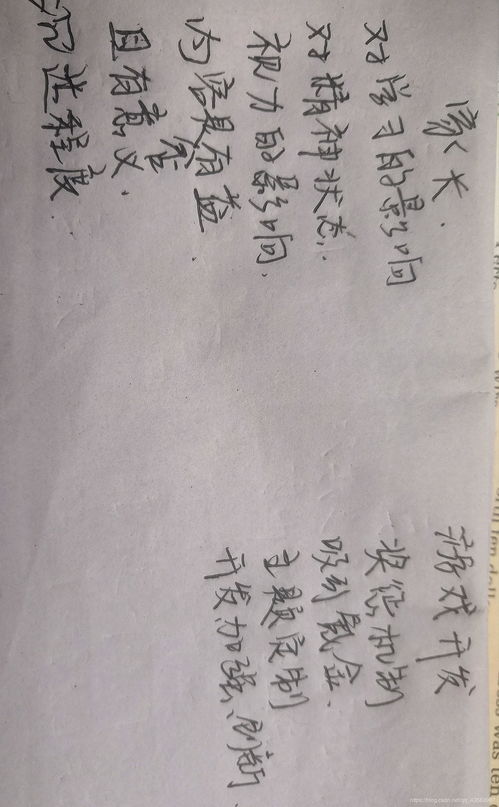 家长.
对学习的影响
对精神状态.
视力的影响.
内容是否有益
且有意义.
沉迷程度.
游戏开发
奖惩机制
吸引氪金.
主题定制
开发加强、创新.